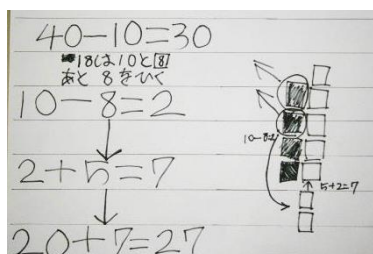 40-10=30
18は10と8
あと8をひく
10-8=2
2+5=7
20+7=27
10-8=2
5+2=7